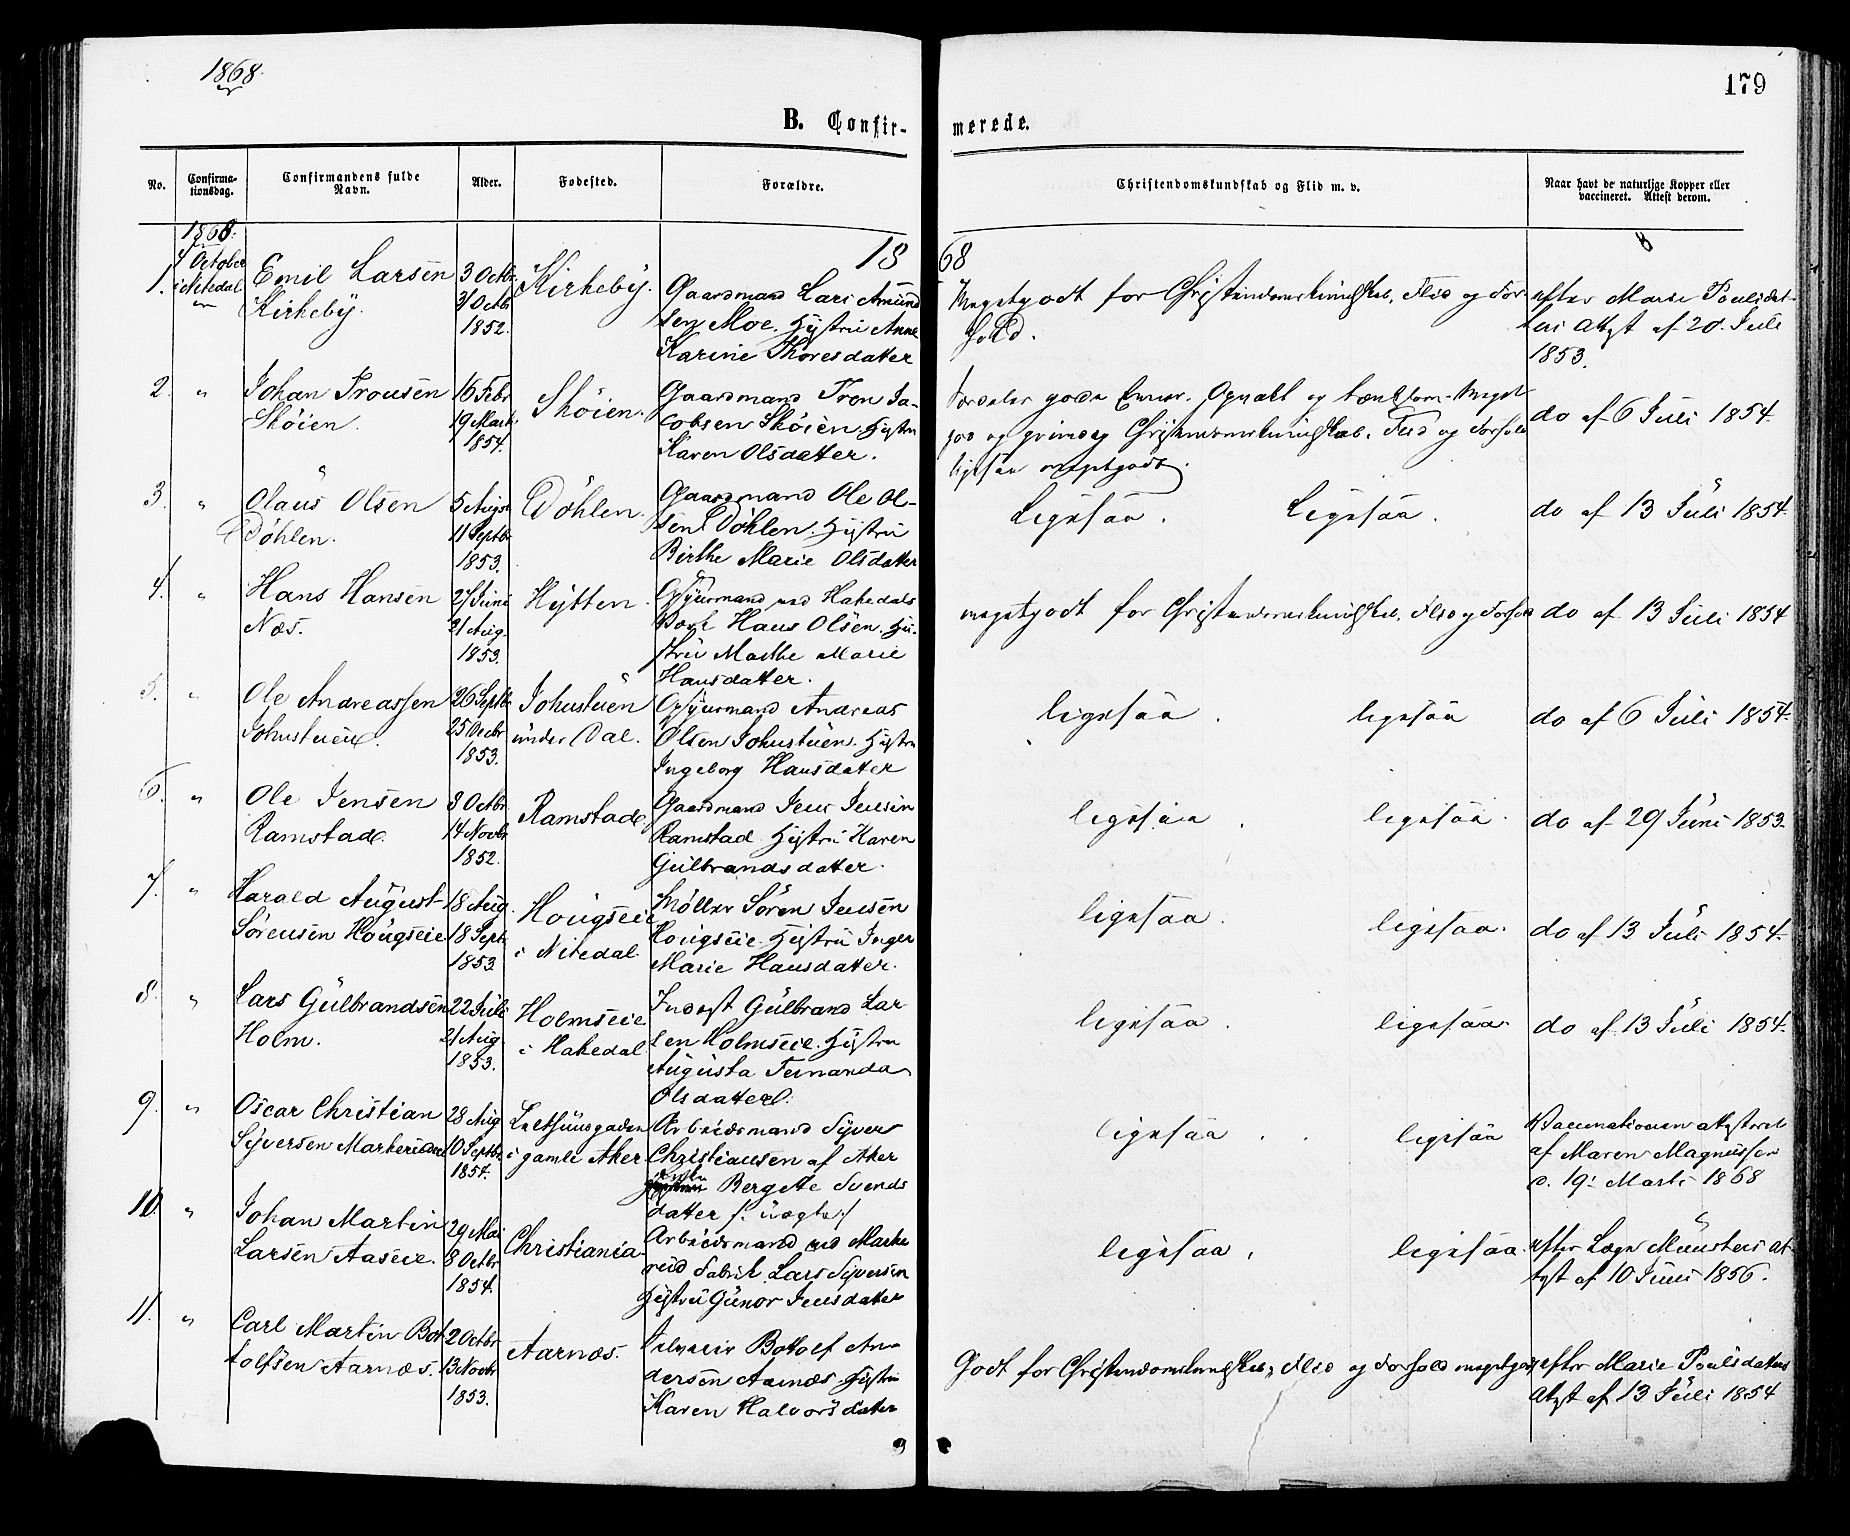 1868.
179
B. Confirmerede.
No.
Confirmationsdag.
Confirmandens fulde Navn.
Alder.
Fødested.
Forældre.
Christendomskundskab og Flid m. v.
Naar havt de naturlige Kopper eller vaccineret. Attest derom.
1868.
18 68
1.
4 October
i Nitedal
Emil Larsen
Kirkeby.
3 Octbr
31 Octbr
1852.
Kirkeby.
Gaardmand Lars Amund
sen Moe. Hustru Anne
Karine Thoresdatter
Megetgodt for Christendomskundskab, Flid og For-
hold.
efter Marie Poulsdat-
ters Attest af 20. Juli
1853.
2. "
Johan Tronsen
Skøien.
16 Febr
19 Marts
1854.
Skøien.
Gaardmand Tron Ja-
cobsen Skøien. Hustru
Karen Olsdatter.
gode Evner. Opvakt og tænksom. Meget
god og grundig Christendomskundskab. Flid og Forhold
ligesaa megetgodt.
do af 6 Juli 1854.
3. "
Olaus Olsen
Døhlen.
5 August
11 Septbr
1853.
Døhlen.
Gaardmand Ole Ol-
sen Døhlen. Hustru
Birthe Marie Olsdatter
Ligesaa. Ligesaa.
do af 13 Juli 1854.
4. "
Hans Hansen
Næs.
27 Juni
21 Aug.
1853.
Hytten.
Opsynsmand ved Hakedals
Værk Hans Olsen. Hu-
stru Marthe Marie
Hansdatter.
megetgodt for Christendomskundskab, Flid og Forhold
do af 13 Juli 1854
5. "
Ole Andreassen
Johnstuen.
26 Septbr
25 Decbr
1853.
Johnstuen
under Dal.
Opsynsmand Andreas
Olsen Johnstuen. Hustru
Ingeborg Hansdatter
ligesaa. ligesaa
do af 6 Juli 1854.
6. "
Ole Jensen
Ramstad.
8 Octbr
14 Novbr
1852.
Ramstad.
Gaardmand Jens Jensen
Ramstad. Hustru Karen
Gulbrandsdatter.
ligesaa. ligesaa.
do af 29 Juni 1853.
7. "
Harald August
Sørensen Hougseie
18 Aug.
18 Septr
1853
Hougseie
i Nitedal
Møller Søren Jensen
Hougseie. Hustru Inger
Marie Hansdatter.
ligesaa. ligesaa.
do af 13 Juli 1854.
8. "
Lars Gulbrandsen
Holm.
22 Juli
21 Aug
1853.
Holmseie
i Hakedal
Inderst Gulbrand Lar
sen Holmseie. Hustru
Augusta Fernanda
Olsdatter.
ligesaa. ligesaa.
do af 13 Juli 1854.
9. "
Oscar Christian
Syversen Markerud
28 Aug
10 Septbr
1854.
i gamle Aker
Arbeidsmand Syver
Christiansen af Aker
Bergete Svends
datter /: uægte :/
ligesaa. ligesaa
Vaccinationen attesteret
af Maren Magnussen
d. 19. Marts 1868
10. "
Johan Martin
Larsen Aaseie.
29 Mai
8 Octbr
1854.
Christiania
Arbeidsmand ved Marke
rud Fabrik Lars Syversen
Hustru Gunor Jensdatter
ligesaa. ligesaa.
efter Læge Münsters At-
test af 10 Juni 1856.
11. "
Carl Martin Bot
tolfsen Aarnæs.
2 Octbr
13 Novbr
1853.
Aarnæs.
Botolf An-
dersen Aarnæs. Hustru
Karen Halvorsdatter
Godt for Christendomskundskab, Flid og Forhold megetgodt
efter Marie Poulsdatters
Attest af 13 Juli 1854